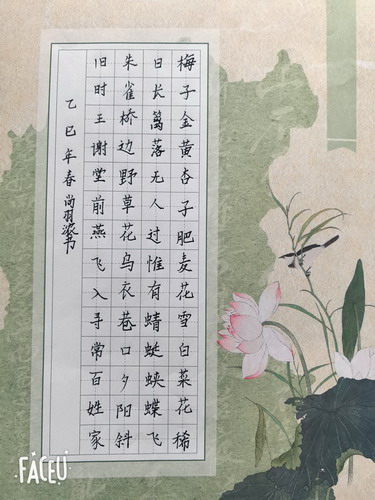 梅子金黄杏子肥麦花雪白菜花稀
日长篱落无人过惟有蜻蜓蛱蝶飞
朱雀桥边野草花乌衣巷口夕阳斜
旧时王谢堂前燕飞入寻常百姓家
乙巳年春尚羽书
FACEU